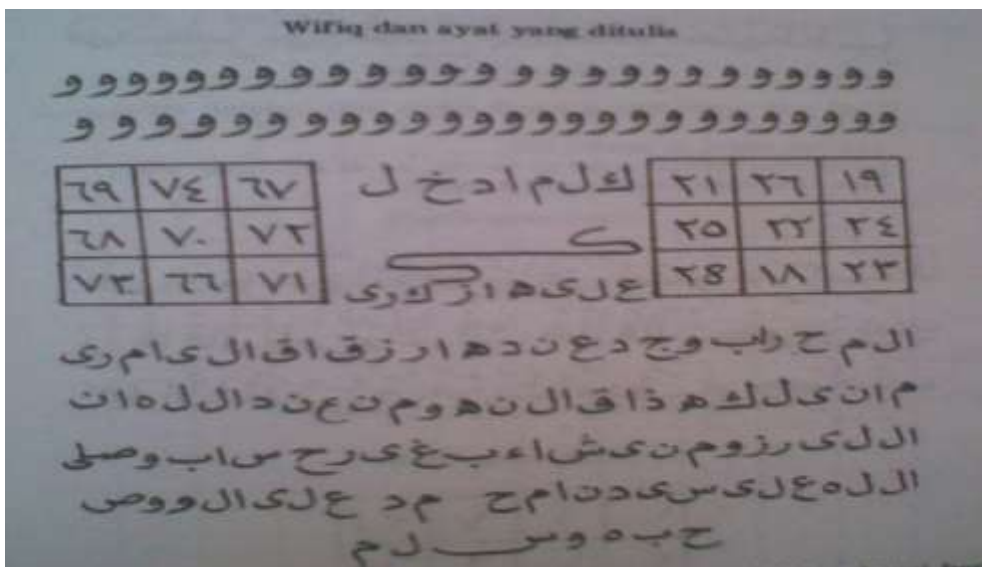 Wifiq dan ayat yang ditulis
و و و و و و و و و و و و و و و و و و و و و و و و و و و و
و و و و و و و و و و و و و و و و و و و و و و و و و و و
١٩ ٢٦ ٢١ ك ل م ا د خ ل ٦٧ ٧٤ ٦٩
٢٤ ٢٢ ٢٥ ٧٢ ٧٠ ٦٨
٢٣ ١٨ ع ل ى ه ا ز ك ر ى ٧١ ٦٦ ٧٣
ا ل م ح ر ا ب و ج د ع ن د ه ا ر ز ق ا ق ا ل ى ا م ر ى
م ا ن ى ل ك ه ذ ا ق ا ل ت ه و م ن ع ن د ا ل ل ه ا ن
ا ل ل ى ر ز و م ن ى ش ا ء ب غ ى ر ح س ا ب و صلى
ا ل ل ه ع ل ى س ى د ن ا م ح م د ع ل ى ا ل و و ص
ح ب ه و س ل م